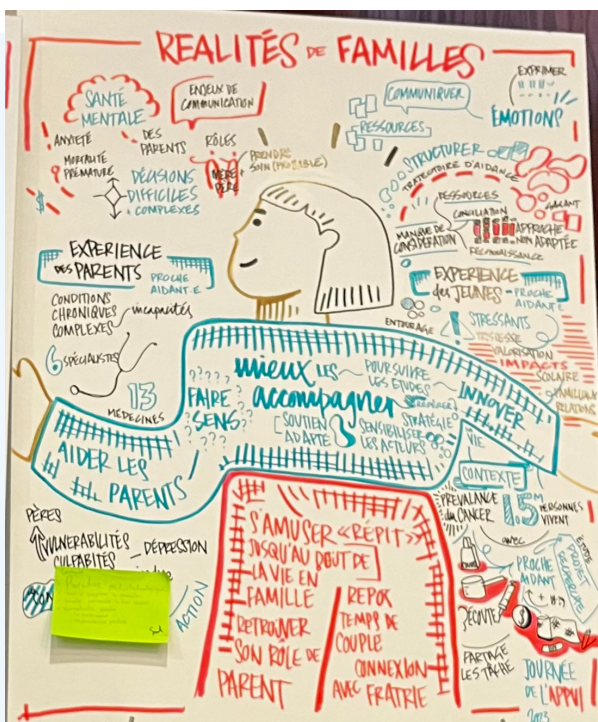 REALITÉS DE FAMILLES
SANTÉ
MENTALE
ANXIÉTÉ
MORTALITÉ
PRÉMATURÉ
DES
PARENTS
ENJEUX DE
COMMUNICATION
RÔLES
MÈRE
PÈRE
PRENDRE
SOIN
DÉCISIONS
DIFFICILES
+ COMPLEXES
$
COMMUNIQUER
RESSOURCES
EXPRIMER
ÉMOTIONS
STRUCTURER
TRAJECTOIRE D'AIDANCE
RESSOURCES
CONCILIATION
MANQUE DE
CONSIDÉRATION
RECONNAISSANCE
APPROCHE
NON ADAPTÉE
EXPERIENCE
DES PARENTS
PROCHE
AIDANT·E
CONDITIONS
CHRONIQUES
COMPLEXES
incapacités
6 SPÉCIALISTES
13
MÉDECINES
EXPERIENCE
des JEUNES - PROCHE
AIDANT·E
ENTOURAGE
! STRESSANTS
VALORISATION
IMPACTS
SCOLAIRE
FAMILIAUX
RELATIONS
AIDER LES
PARENTS
????
FAIRE
SENS
???
mieux LES
accompagner
SOUTIEN
ADAPTÉ
POURSUIVRE
LES ÉTUDES
STRATÉGIE
SENSIBILISER
LES ACTEURS
INNOVER
VIE
CONTEXTE
PRÉVALANCE
du CANCER
1.5 M PERSONNES
VIVENT
avec
PROCHE
AIDANT
ÉTUDE
PROJET
RECHERCHE
ÉCOUTE
PARTAGE
LES TÂCHE
JOURNÉE
DE L'APPUI
2023
PÈRES
VULNÉRABILITÉS
CULPABITÉS
DÉPRESSION
ACTION
S'AMUSER «RÉPIT»
JUSQU'AU BOUT DE
LA VIE EN
FAMILLE
RETROUVER
SON RÔLE DE
PARENT
REPOX
TEMPS DE
COUPLE
CONNEXION
AVEC FRATRIE